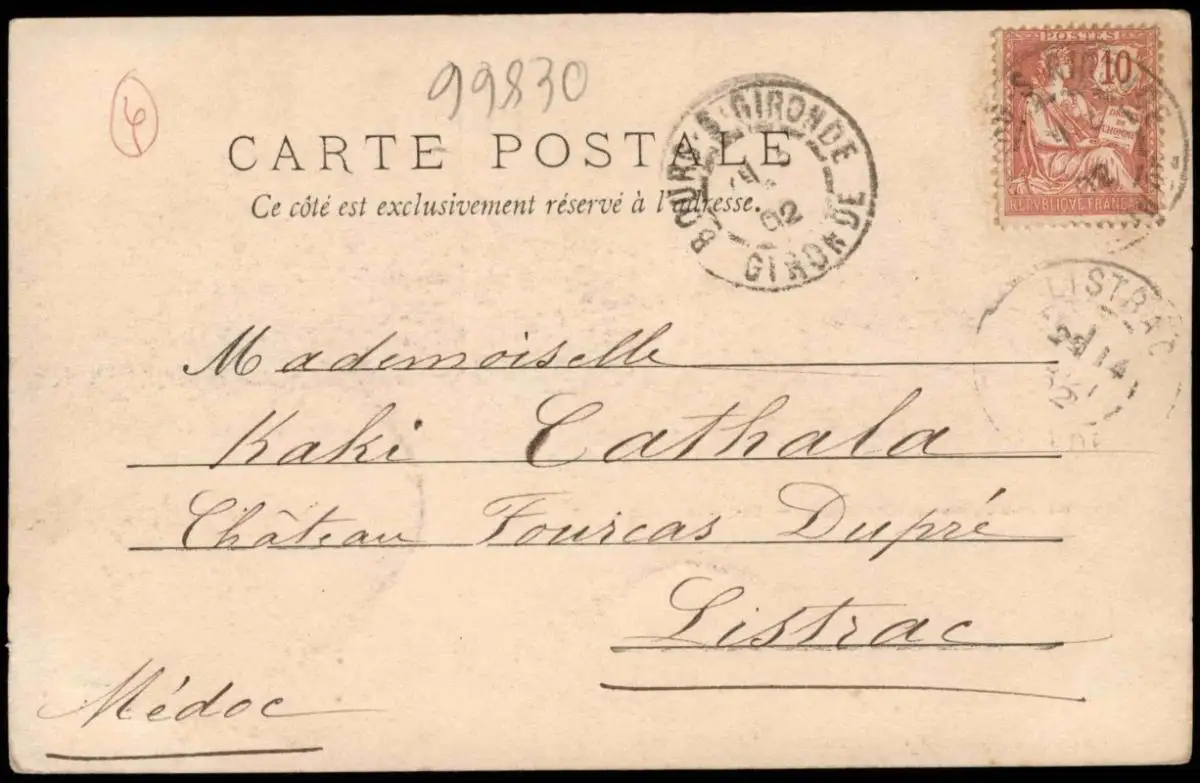 99830
CARTE POSTALE
Ce côté est exclusivement réservé à l'adresse.
BOURG-S-GIRONDE
02
GIRONDE
POSTES
10
DROITS
DE
L'HOMME
REPVBLIQVE FRANÇAISE
LISTRAC
14
Mademoiselle
Kaki Cathala
Château Fourcas Dupré
Listrac
Médoc